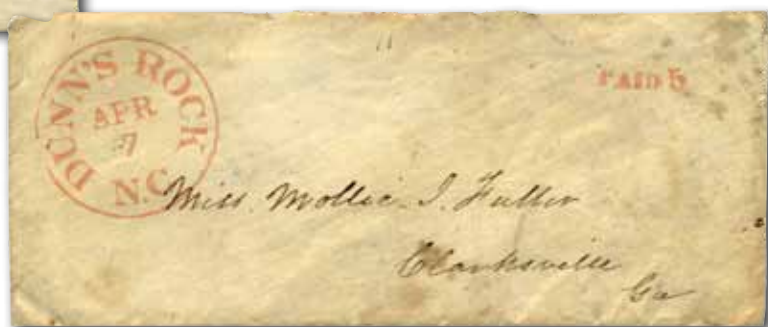 DUNN'S ROCK
APR
7
N.C.
PAID 5
Miss. Mollie I. Fuller
Clarksville
Ga